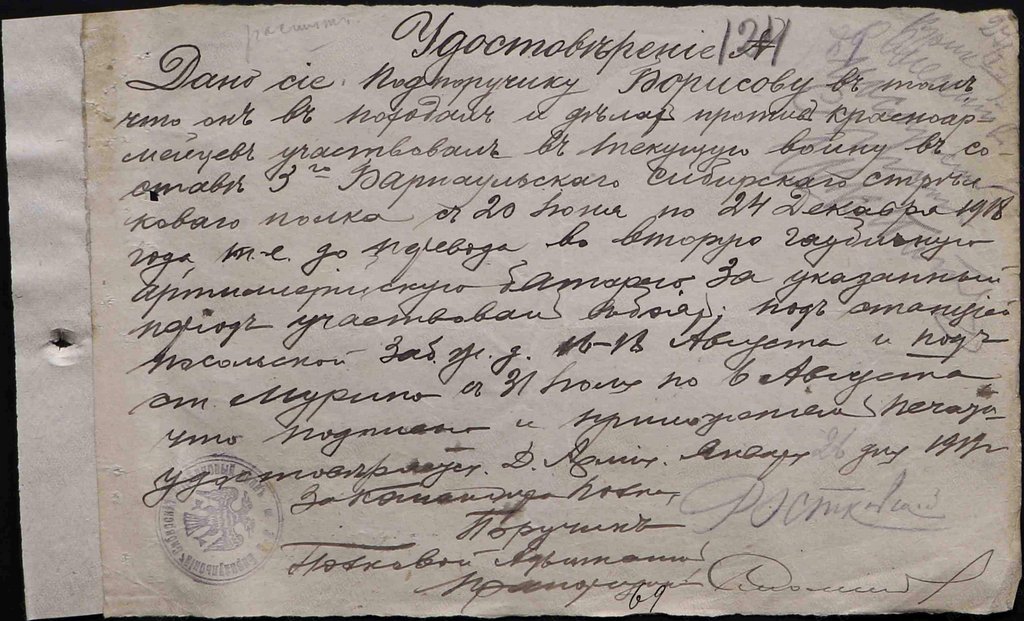 Удостовѣреніе № 1241
Дано сіе Подпоручику Борисову въ томъ
что онъ въ походахъ и дѣлахъ противъ красноар-
мейцевъ участвовалъ въ текущую войну въ со-
ставѣ 3го Барнаульскаго Сибирскаго стрѣл-
коваго полка съ 20 Іюня по 24 Декабря 1918
года т.-е. до перевода во вторую гаубичную
артиллерійскую батарею За указанный
періодъ участвовалъ въ бояхъ: подъ станціей
Посольской Заб. ж. д. 16-18 Августа и подъ
ст. Мурино съ 31 Іюля по 6 Августа
что подписью и приложеніемъ печати
удостовѣряется. Д. Армія. Января 26 дня 1919 г
За Командира полка,
Поручикъ Ростковскій
Полковой Адъютантъ
Прапорщикъ
69